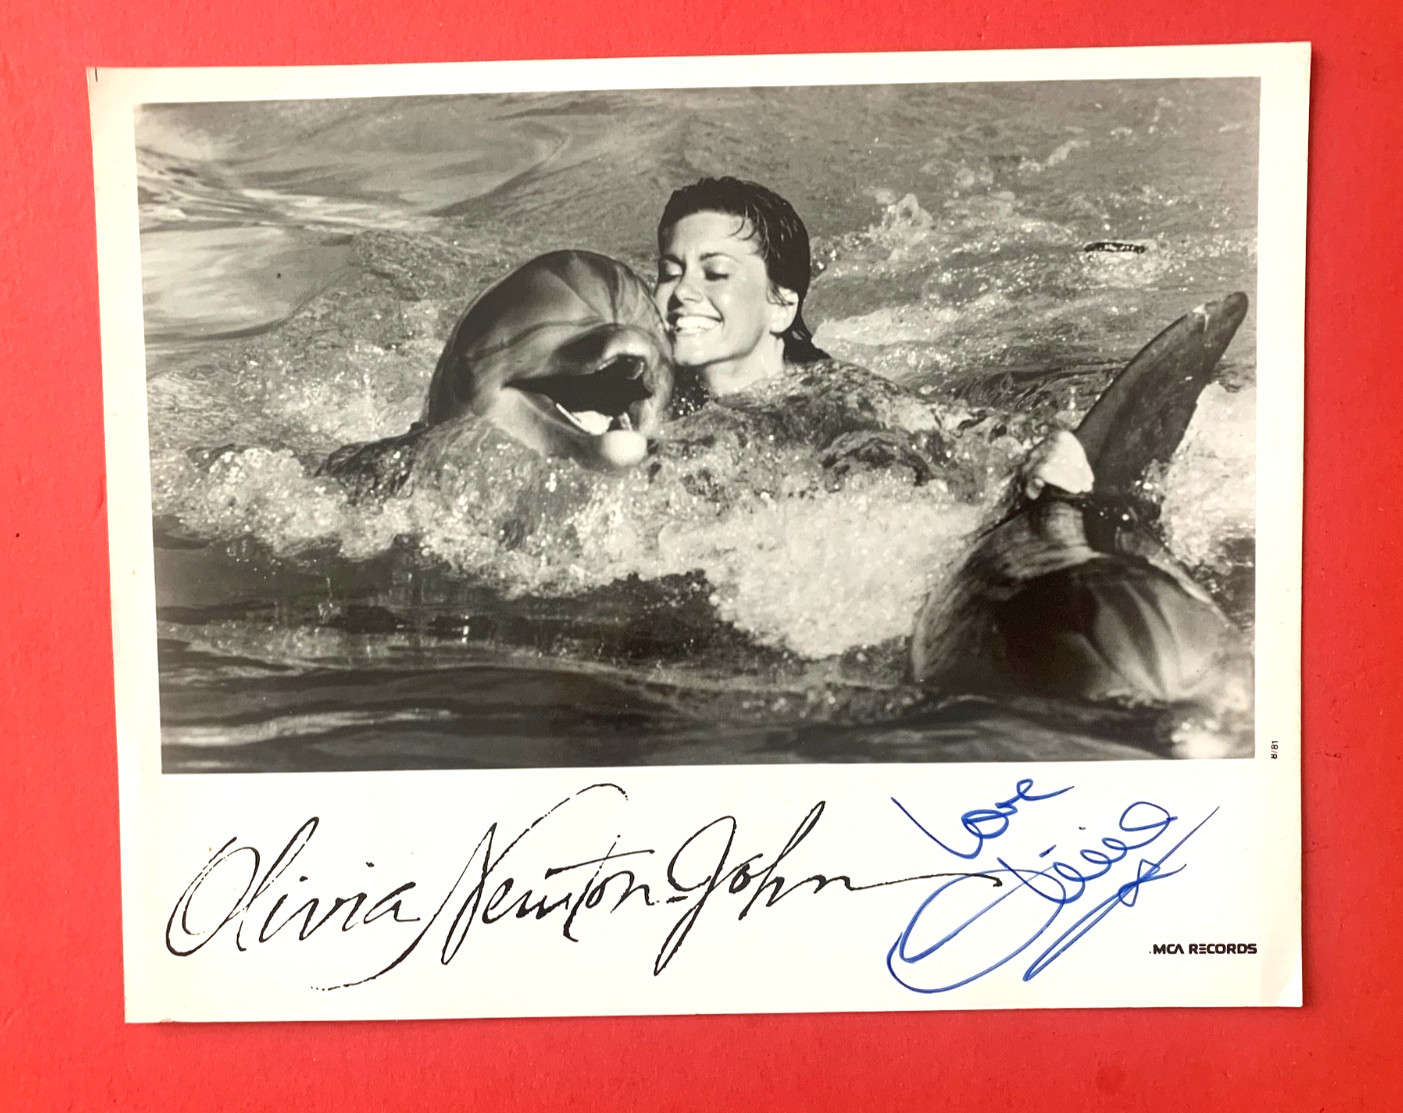 8/81
Olivia Newton-John
Love
Olivia
x
MCA RECORDS